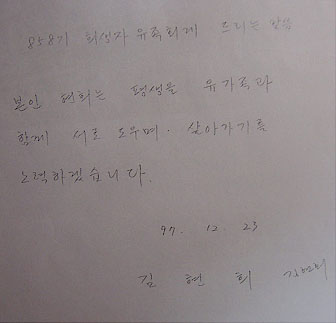 858기 희생자 유족회께 드리는 말씀
본인 현희는 평생을 유가족과
함께 서로 도우며. 살아가기를
노력하겠습니다.
97. 12. 23
김 현 희 김현희